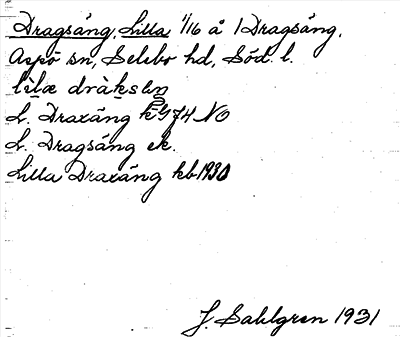 Dragsäng, Lilla 1/16 å 1 Dragsäng,
Aspö sn, Selebo hd, Söd. l.
L. Draxäng k G74 NO
L. Dragsäng ek.
Lilla Draxäng kb 1930
J. Sahlgren 1931